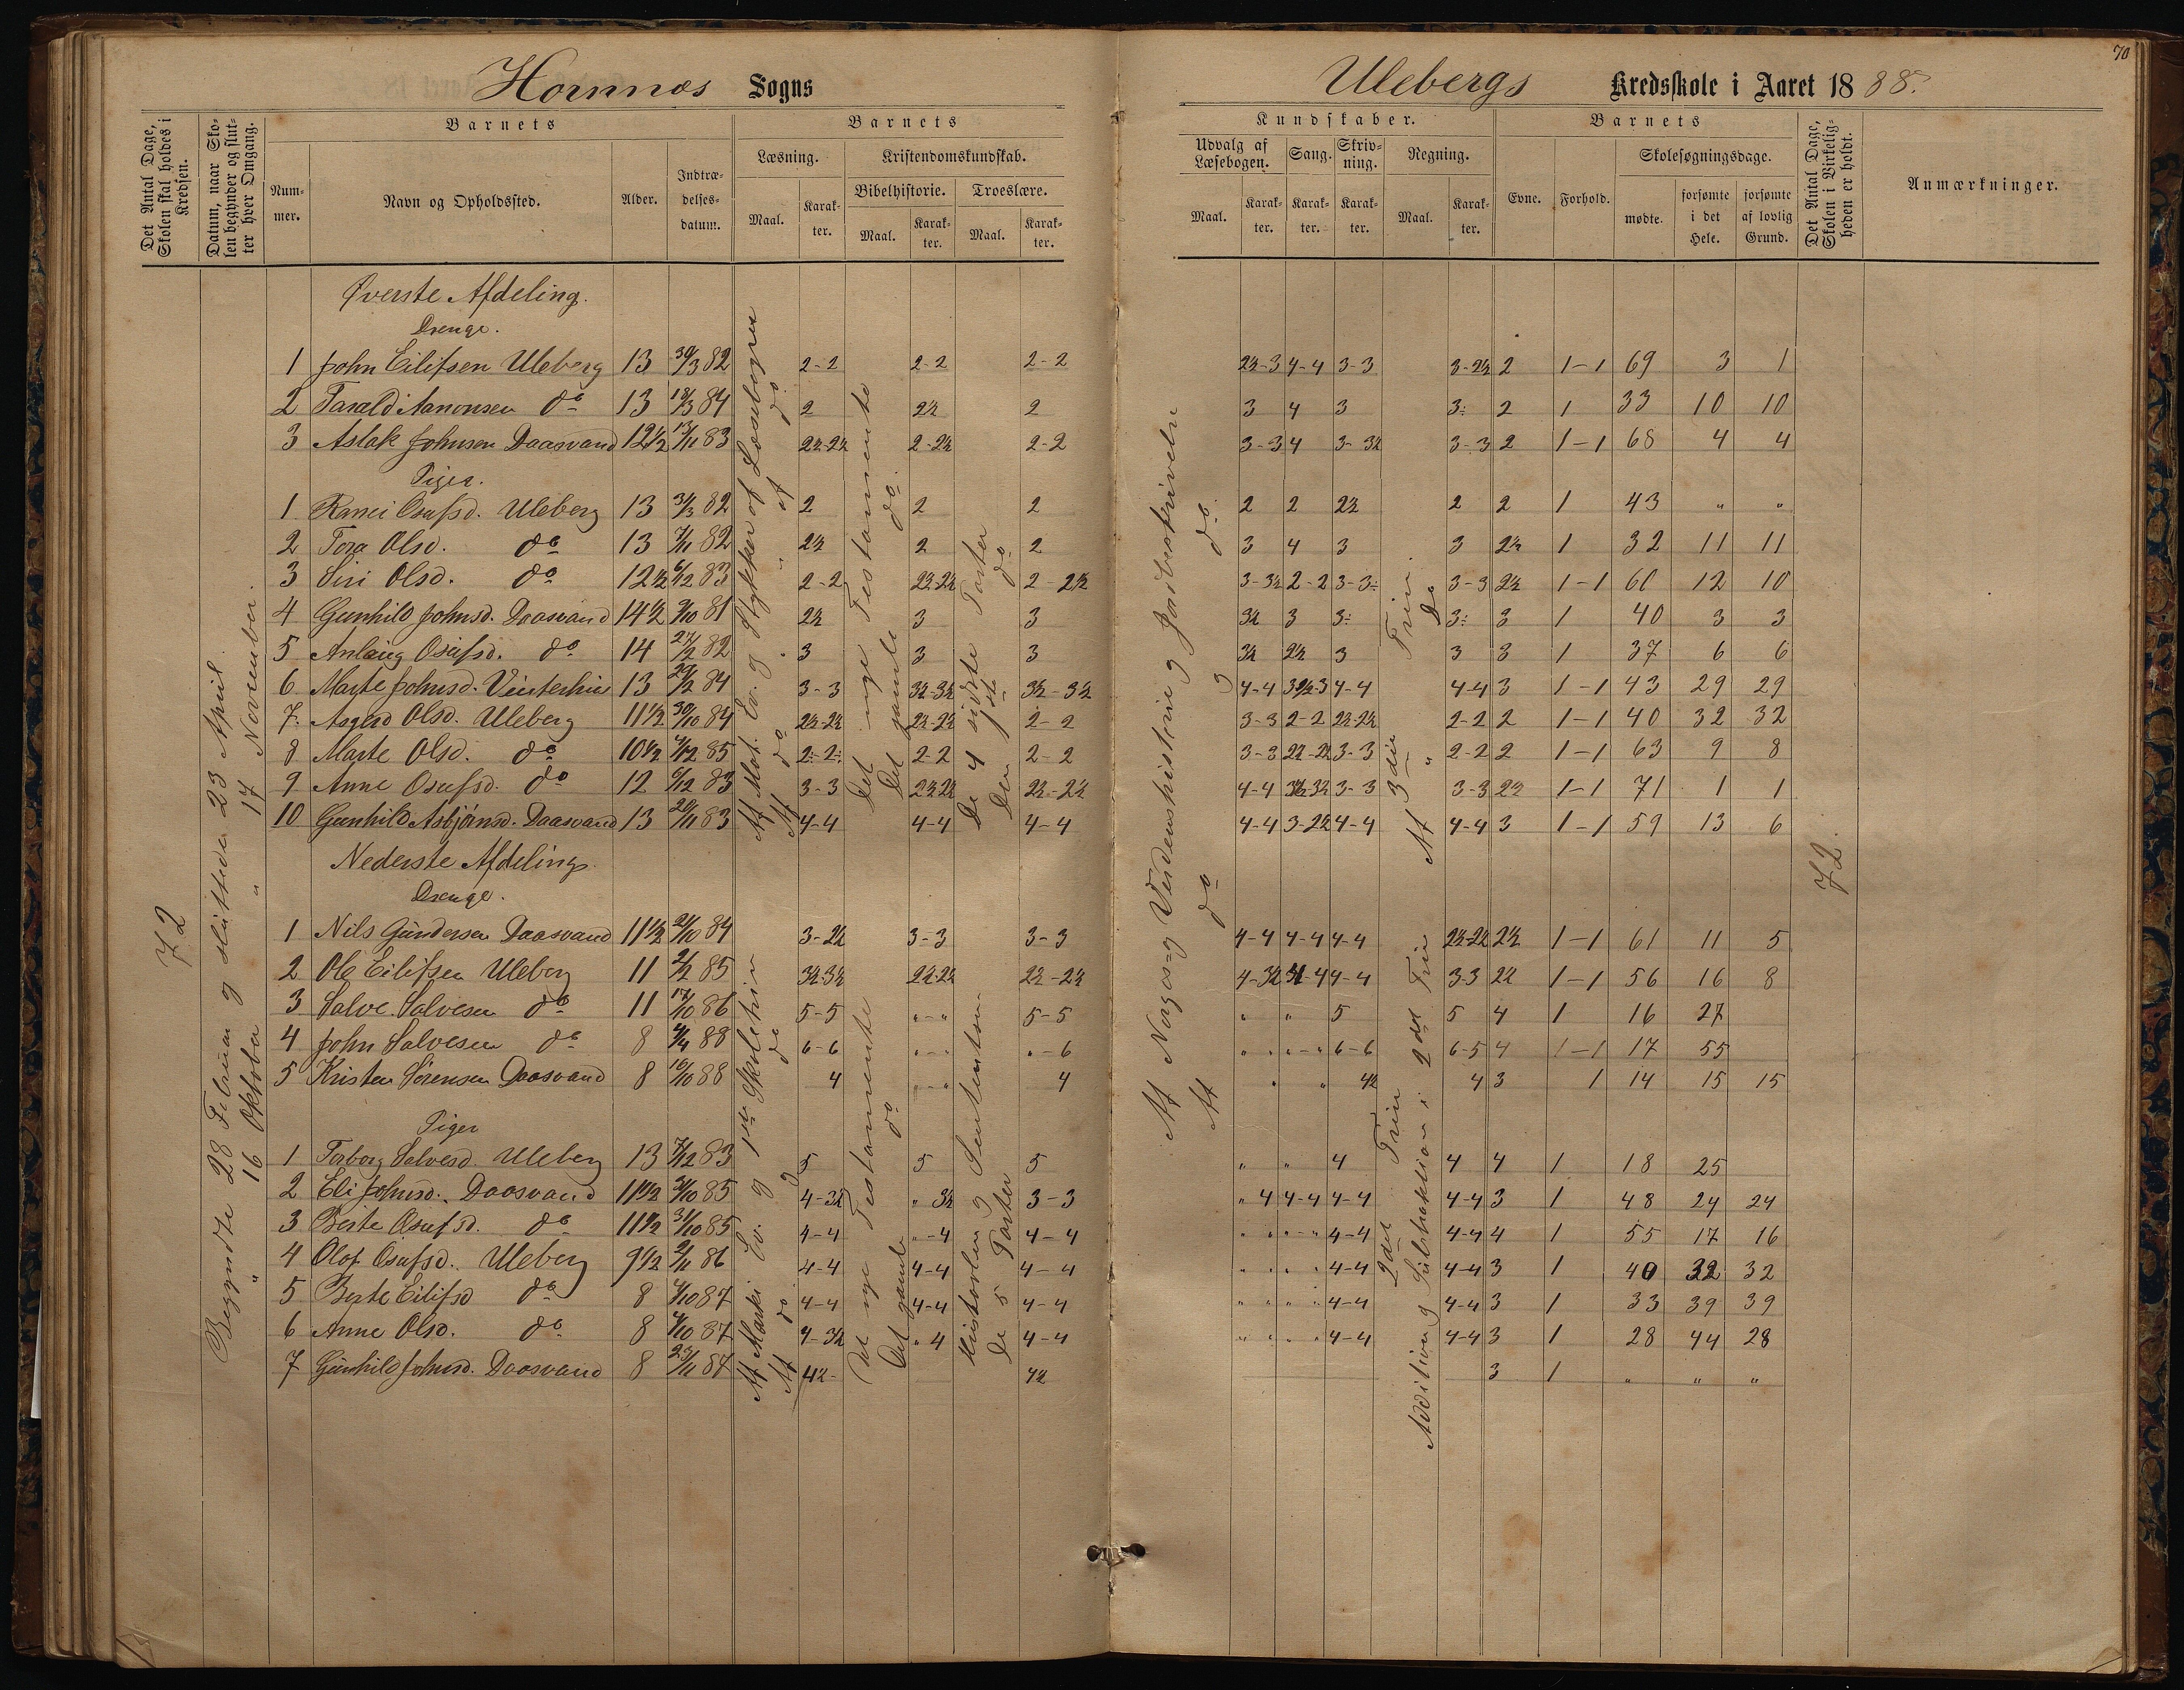 70
Hornnæs Sogns
Ulebergs Kredsskole i Aaret 1888.
Det Antal Dage, Skolen skal holdes i Kredsen.
Datum, naar Skolen begynder og slutter hver Omgang.
Barnets
Nummer.
Navn og Opholdssted.
Alder.
Indtrædelsesdatum.
Barnets
Læsning.
Maal.
Karakter.
Kristendomskundskab.
Bibelhistorie.
Maal.
Karakter.
Troeslære.
Maal.
Karakter.
Kundskaber.
Udvalg af Læsebogen.
Maal.
Karakter.
Sang.
Karakter.
Skrivning.
Karakter.
Regning.
Maal.
Karakter.
Barnets
Evne.
Forhold.
Skolesøgningsdage.
mødte.
forsømte i det Hele.
forsømte af lovlig Grund.
Det Antal Dage, Skolen i Virkeligheden er holdt.
Anmærkninger.
72
Begyndte 28 Februar og sluttede 23 April.
" 16 Oktober " 17 November.
Øverste Afdeling.
Drenge.
1 John Eilifsen Uleberg 13 30/3 82 2-2 2-2 2-2 2½-3 4-4 3-3 3-2½ 2 1-1 69 3 1
2 Tarald Aanonsen do 13 18/3 84 2 2½ 2 3 4 3 3: 2 1 33 10 10
3 Aslak Johnsen Daasvand 12½ 13/11 83 2½-2½ 2-2½ 2-2 3-3 4 3-3½ 3-3 2 1-1 68 4 4
Piger.
1 Ranei Osufsd. Uleberg 13 31/3 82 2 2 2 2 2 2½ 2 2 1 43 " "
2 Tora Olsd. do 13 7/11 82 2½ 2 2 3 4 3 3 2½ 1 32 11 11
3 Siri Olsd. do 12½ 6/12 83 2-2 2½-2½ 2-2½ 3-3½ 2-2 3-3: 3-3 2½ 1-1 60 12 10
4 Gunhild Johnsd. Daasvand 14½ 3/10 81 2½ 3 3 3½ 3 3: 3: 3 1 40 3 3
5 Anlaug Osufsd. do 14 27/2 82 3 3 3 3½ 2½ 3 3 3 1 37 6 6
6 Marte Johnsd. Vinterhus 13 29/2 84 3-3 3½-3½ 3½-3½ 4-4 3½-3 4-4 4-4 3 1-1 43 29 29
7. Asgerd Olsd. Uleberg 11½ 30/10 84 2½-2½ 2½-2½ 2-2 3-3 2-2 2½-2½ 2-2 2 1-1 40 32 32
8 Marte Olsd. do 10½ 4/12 85 2:-2: 2-2 2-2 3-3 2½-2½ 3-3 2-2 2 1-1 63 9 8
9 Anne Osufsd. do 12 6/12 83 3-3 2½-2½ 2½-2½ 4-4 3½-3½ 3-3 3-3 2½ 1-1 71 1 1
10 Gunhild Asbjørnsd. Daasvand 13 20/11 83 4-4 4-4 4-4 4-4 3-2½ 4-4 4-4 3 1-1 59 13 6
Af Mat. Ev. og Stykker af Læsebogen
Af do " " af do
Det nye Testamente
Det gamle do.
De 4 sidste Parter
Den 1ste do
Af Norges- og Verdenshistorie og Jordbeskrivelse
Af do og do.
Af 3die Trin.
" Do
72.
Nederste Afdeling.
Drenge.
1 Nils Gundersen Daasvand 11½ 21/10 84 3-2½ 3-3 3-3 4-4 4-4 4-4 2½-2½ 2½ 1-1 61 11 5
2 Ole Eilifsen Uleberg 11 2/2 85 3½-3½ 2½-2½ 2½-2½ 4-3½ 4-4 4-4 3-3 2½ 1-1 56 16 8
3 Salve Salvesen do 11 17/10 86 5-5 "-" 5-5 " " 5 5 4 1 16 27
4 John Salvesen do 8 4/4 88 6-6 "-" "-6 " " "-" 6-6 6-5 4 1-1 17 55
5 Kristen Sørensen Daasvand 8 16/10 88 4 "-" 4 " " 4½ 4 3 1 14 15 15
Piger
1 Torborg Salvesd. Uleberg 13 7/12 83 5 5 5 " " 4 4 4 1 18 25
2 Eli Johnsd. Daasvand 11½ 31/10 85 4-3½ " 3½ 3-3 " 4 4-4 4-4 4-4 3 1 48 24 24
3 Berte Osufsd. do 11½ 31/10 85 4-4 "-4 4-4 " " "-" 4-4 4-4 4 1 55 17 16
4 Olof Osufsd. Uleberg 9½ 2/11 86 4-4 4-4 4-4 " " " " 4-4 4-4 3 1 40 32 32
5 Berte Eilifsd do 8 4/10 87 4-4 4-4 4-4 " " " " 4-4 4-4 3 1 33 39 39
6 Anne Olsd. do 8 4/10 87 4-3½ " 4 4-4 " " " " 4-4 4-4 3 1 28 44 28
7 Gunhild Johnsd. Daasvand 8 23/11 87 4½- 4½ 3 1 " " "
Af Marki Ev. og 1ste Skoletrin
Af do og do
Det nye Testamente
Det gamle do
Historien og Sentensen
De 5 Parter
2det Trin
Addition og Subtraktion i 2det Trin